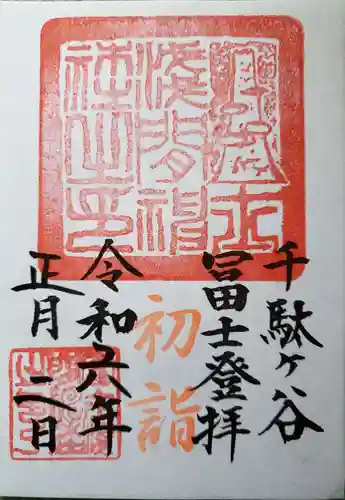 千駄ヶ谷
冨士登拝
初詣
令和六年
正月二日